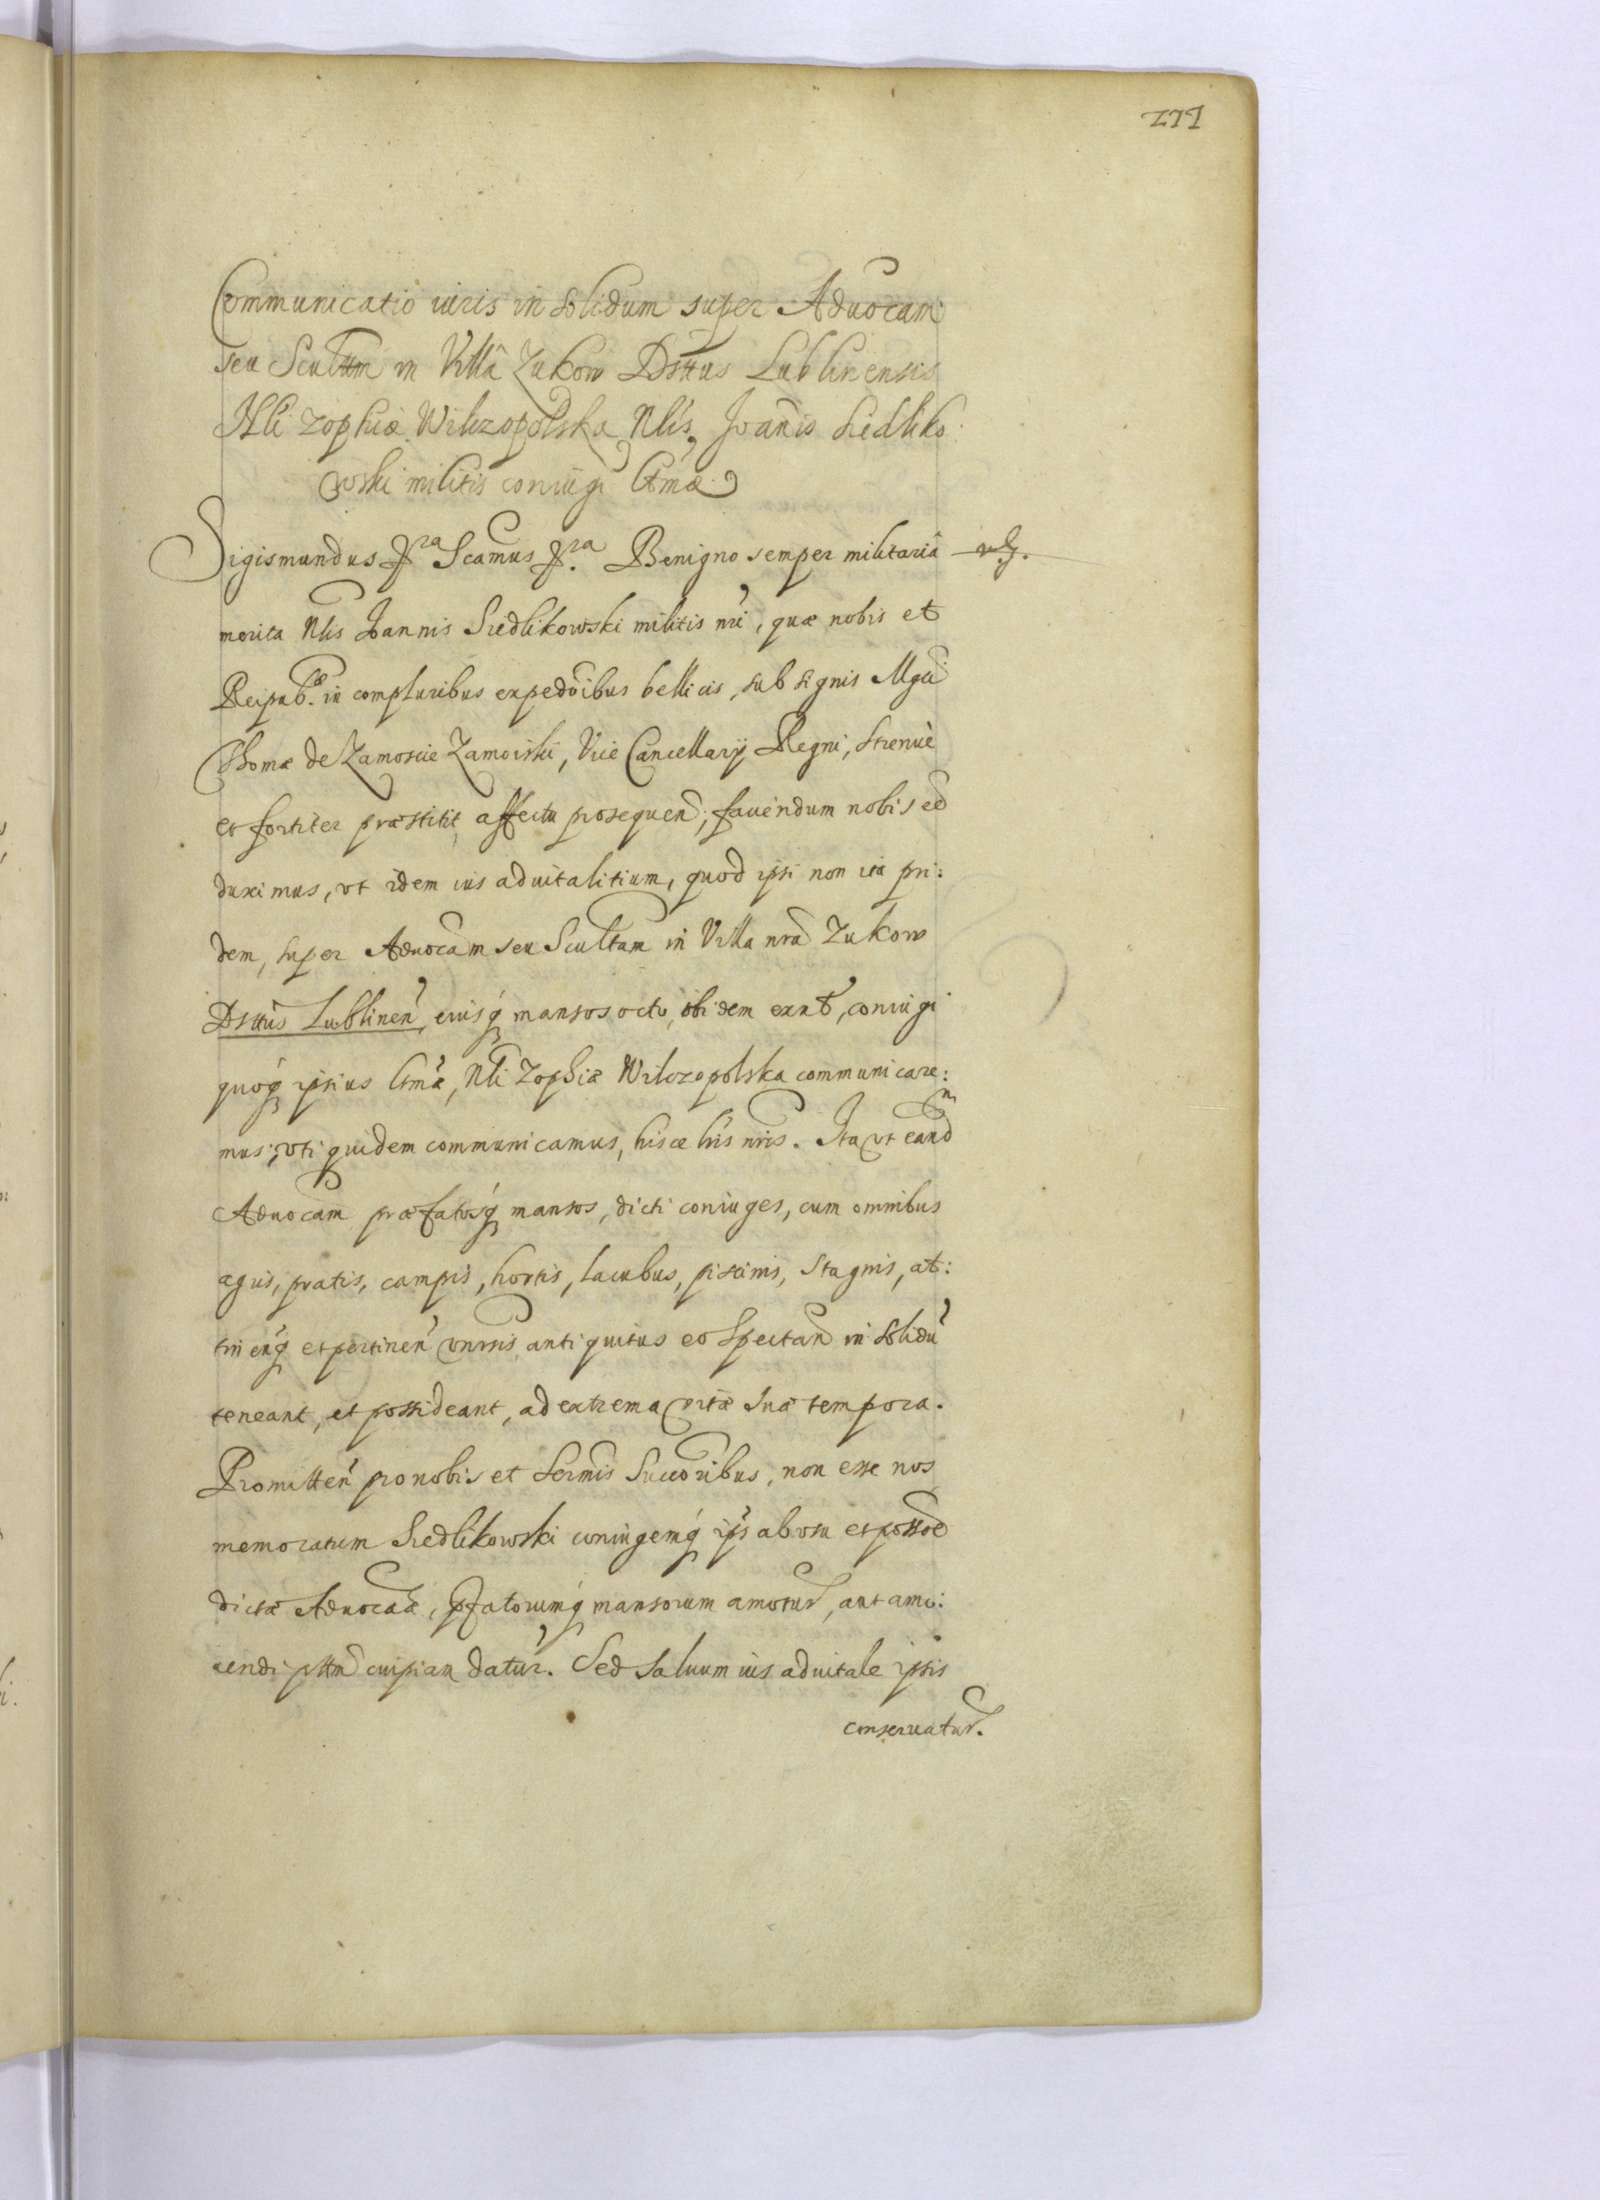 277
Communicatio iuris in solidum super Aduocam
seu Scultm in Villâ Zukow Dsttus Lublinensis
Nli Zophiæ Wilczopolska Nlis Joanis Siedliko:
wski militis coniugi Ctmæ
Sigismundus &ra Scamus &ra. Benigno semper militaria
merita Nlis Joannis Siedlikowski militis nri, quæ nobis et
Reipub. in compluribus expedoibus bellicis, sub signis Mgci
Thomæ de Zamoscie Zamoiski, Vice Cancellarij Regni, strenuè
et fortiter præstitit affectu prosequen; fauendum nobis eo
duximus, vt idem ius aduitalitium, quod ipsi non ita pri:
dem, super Aduocam seu Scultam in Villa nra Zukow
Dsttus Lublinen, eiusq mansos octo, ibidem exnt, coniugi
quoq ipsius Ctmæ, Nli Zophiæ Wilczopolska communicare:
mus, vti quidem communicamus, hisce lris nris. Ita vt eand
Aduocam præfatosq mansos, dicti coniuges, cum omnibus
agris, pratis, campis, hortis, lacubus, piscinis, stagnis, at:
tinenq et pertinen vnirsis antiquitus eo spectan in solidu
teneant, et possideant, ad extrema vitæ suæ tempora.
Promitten pro nobis et Sermis Succoribus, non esse nos
memoratum Siedlikowski coniugemq ips ab vsu et possoe
dictæ Aduocaæ, pfatorumq mansorum amotur, aut amo:
uendi pttm cuipiam datur. Sed saluum ius aduitale ipsis
conseruatur.